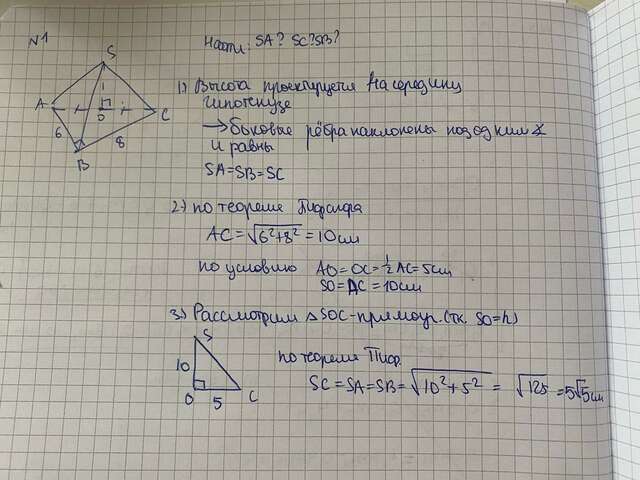 N1
Найти: SA? SC? SB?
S
A
O
C
6
8
B
1) Высота проектируется на середину
гипотенузе
→ боковые рёбра наклонены под одним ∡
и равны
SA=SB=SC
2) по теореме Пифагора
AC = √6²+8² = 10 см
по условию AO = OC = ½ AC = 5см
SO = AC = 10см
3) Рассмотрим △SOC-прямоуг. (тк. SO=h)
S
10
O
5
C
по теореме Пиф.
SC = SA = SB = √10²+5² = √125 = 5√5 см